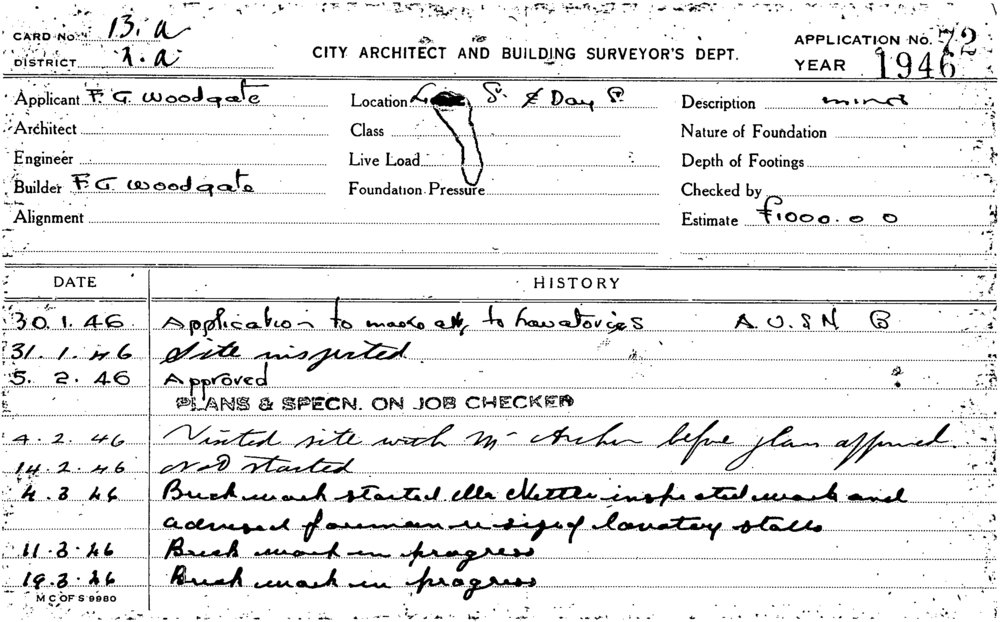 CARD No. 13.a
DISTRICT 2.a
CITY ARCHITECT AND BUILDING SURVEYOR'S DEPT.
APPLICATION No. 72
YEAR 1946
Applicant F. G. Woodgate
Location St. & Day St.
Description minor
Architect
Class
Nature of Foundation
Engineer
Live Load
Depth of Footings
Builder F. G. Woodgate
Foundation Pressure
Checked by
Alignment
Estimate £1000.0 0
DATE HISTORY
30.1.46 Application to make alt, to Lavatories A.U.S.N B
31.1.46 Site inspected
5. 2. 46 Approved ?
PLANS & SPECN. ON JOB CHECKER
4.2.46 Visited site with Mr Archer before plans approved.
14.2.46 Not started
4.3.46 Brick work started Mr Kettle inspected work and
advised foreman re size of lavatory stalls
11.3.46 Brick work in progress
19.3.46 Brick work in progress
M C OF S 9980